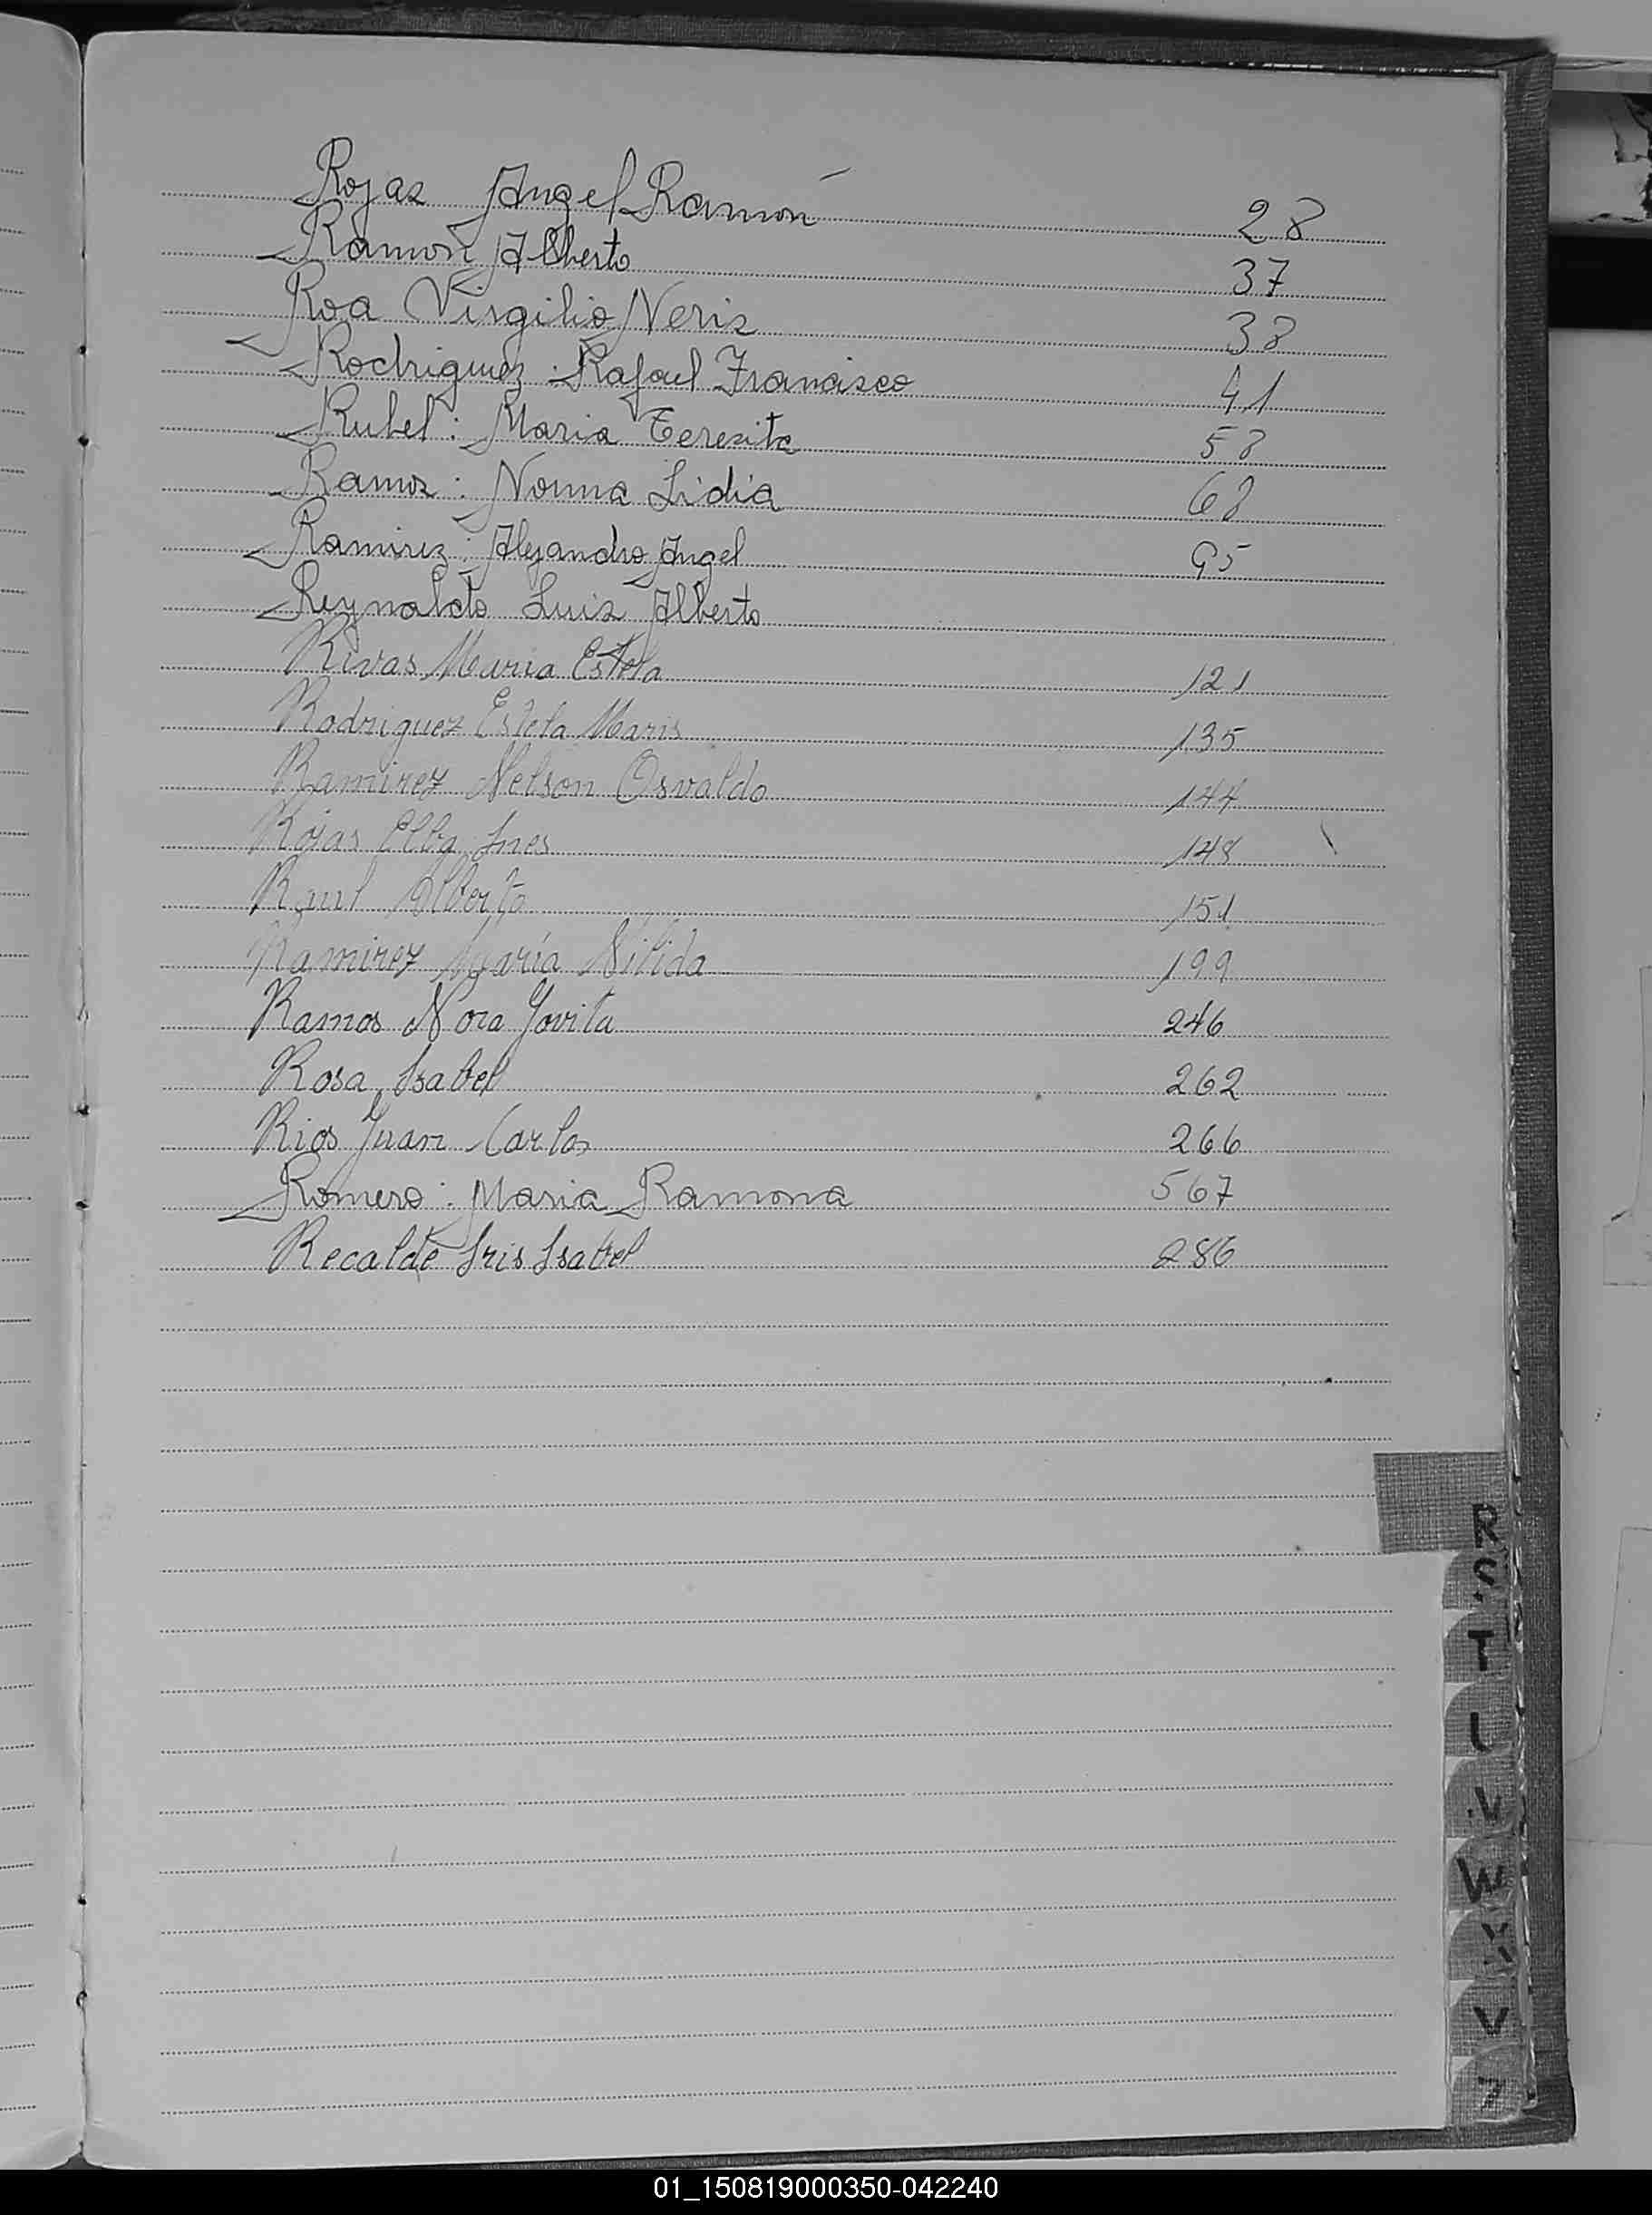 Rojas Angel Ramón 28
Ramon Alberto 37
Roa Virgilio Neris 38
Rodriguez: Rafael Francisco 41
Rubel: Maria Teresita 58
Ramos: Norma Lidia 68
Ramirez: Alejandro Angel 95
Reynaldo Luis Alberto
Rivas Maria Estela 121
Rodriguez Estela Maris 135
Ramirez Nelson Osvaldo 144
Rojas Elba Ines 148
Raul Alberto 151
Ramirez María 199
Ramos Nora Yovita 246
Rosa Isabel 262
Rios Juan Carlos 266
Romero: Maria Ramona 567
Recalde Iris Isabel 286
R
S
T
V
W
V
01_150819000350-042240